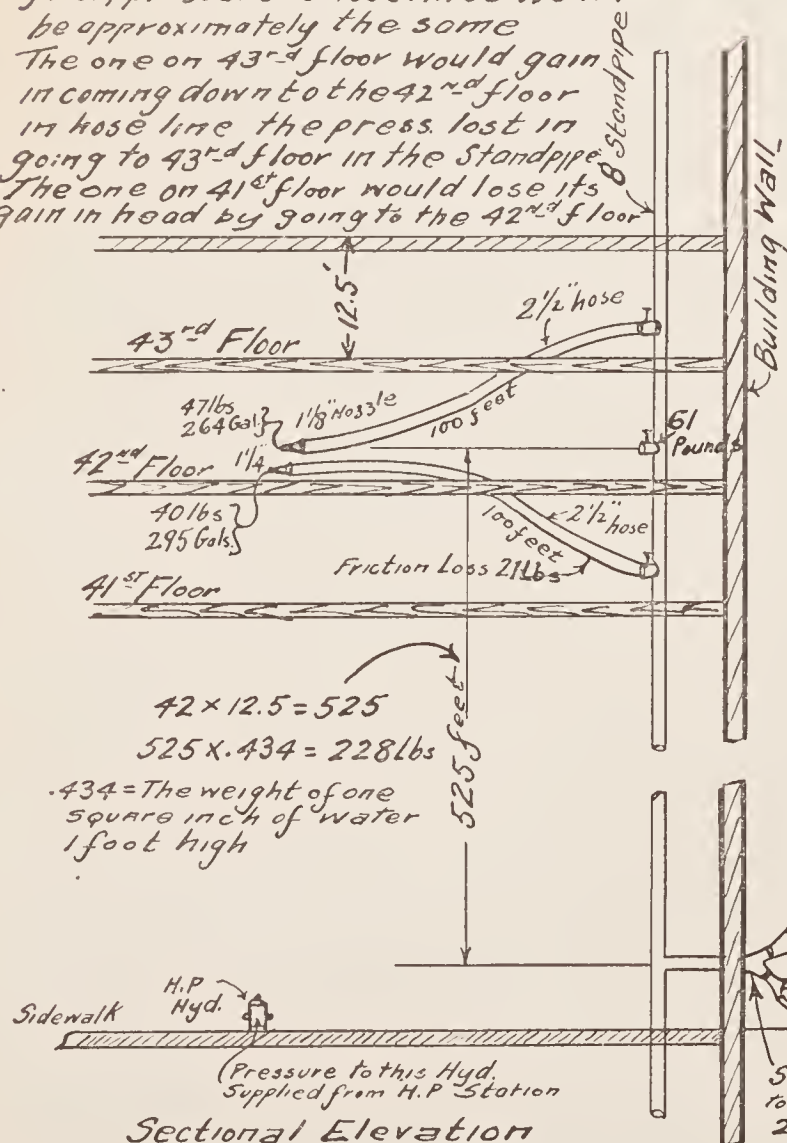 be approximately the same
The one on 43rd floor would gain
in coming down to the 42nd floor
in hose line the press. lost in
going to 43rd floor in the Standpipe.
The one on 41st floor would lose its
gain in head by going to the 42nd floor
8 Standpipe
Building Wall
12.5'
2½" hose
43rd Floor
47lbs
264 Gal.
1⅛" Nozzle
100 feet
61
Pounds
42nd Floor
1¼"
40lbs
295 Gals.
100 feet
2½" hose
Friction Loss 21Lbs
41st Floor
42 × 12.5 = 525
525 × .434 = 228 lbs
.434 = The weight of one
square inch of water
1 foot high
525 feet
H.P
Hyd.
Sidewalk
(Pressure to this Hyd.
Supplied from H.P Station
Sectional Elevation
5
to
2